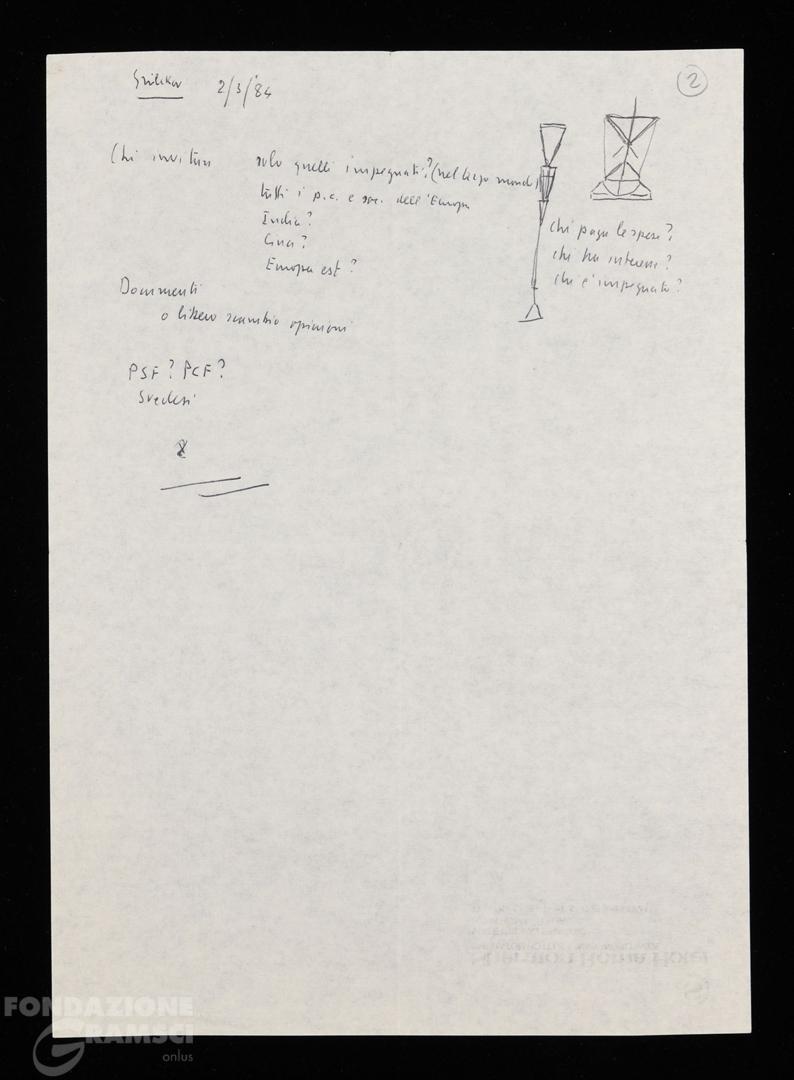 2/3/'84
②
Chi invitare solo quelli impegnati? (nel terzo mondo)
tutti i p.c. e soc. dell'Europa
India?
Cina?
Europa est?
chi paga le spese?
chi ha interesse?
chi è impegnato?
Documenti
o libero scambio opinioni
PSF? PCF?
Svedesi
Sheraton Roma Hotel
FONDAZIONE
GRAMSCI
onlus